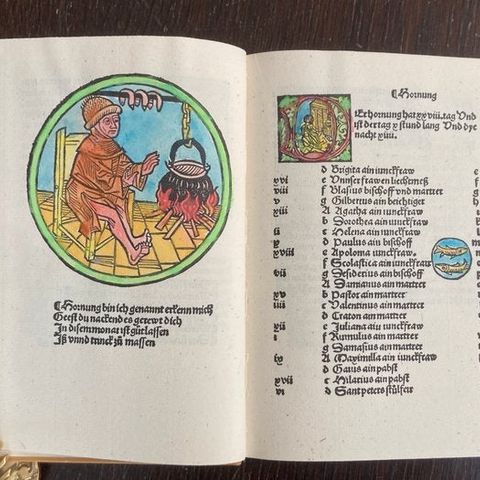 ¶Hornung bin ich genannt erkenn mich
Geest du nackend es gerewt dich
In disem monat ist gůt lassen
Iß vnnd trinck zů massen
¶Hornung
Er hornung hat xxviii. tag Vnd
ist der tag x stund lang Vnd dye
nacht xiiii.
d Brigita ain iunckfraw
xvi e Vnnser frawen liechtmeß
viii f Blasius bischoff vnd martrer
v g Gilbertus ain beichtiger
A Agatha ain iunckfraw
b Dorothea ain iunckfraw
ii c Helena ain iunckfraw
d Paulus ain bischoff
xviii e Apolonia iunckfraw.
f Scolastica ain iunckfraw
vii g Desiderius ain bischoff
A Damianus ain martrer
xv b Pastor ain martrer
iiii c Valentinus ain martrer
d Craton ain martrer
xii e Juliana ain iunckfraw
i f Romulus ain martrer
g Samasius ain martrer
ix A Maximilla ain iunckfraw
b Gaius ain pabst
xvii c Hilarius ain pabst
vi d Sant peters stůlfeir